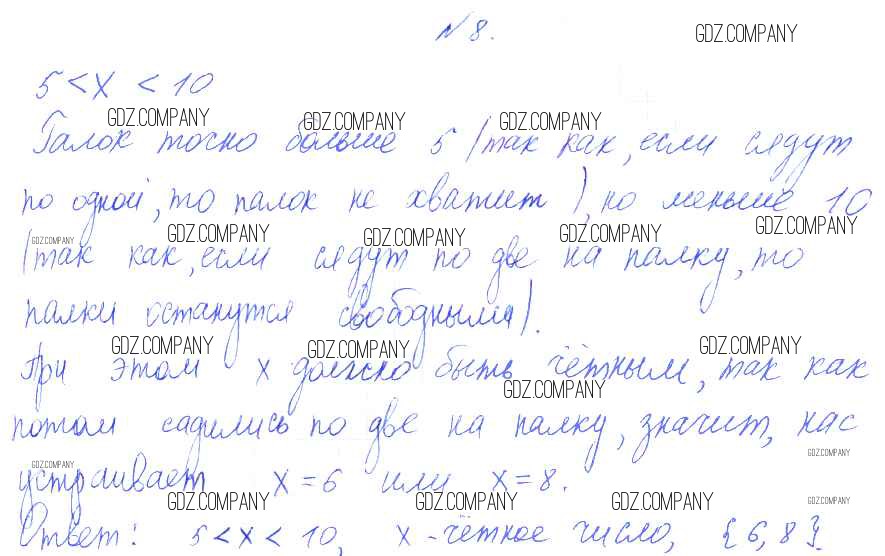 N 8.
GDZ.COMPANY
5 < x < 10
GDZ.COMPANY GDZ.COMPANY GDZ.COMPANY
Галок точно больше 5 (так как, если сядут
по одной, то палок не хватит), но меньше 10
GDZ.COMPANY GDZ.COMPANY GDZ.COMPANY GDZ.COMPANY GDZ.COMPANY
(так как, если сядут по две на палку, то
палки останутся свободными).
GDZ.COMPANY GDZ.COMPANY GDZ.COMPANY
При этом x должно быть чётным, так как
GDZ.COMPANY
потом садились по две на палку, значит, нас
GDZ.COMPANY GDZ.COMPANY
устраивает x = 6 или x = 8.
GDZ.COMPANY GDZ.COMPANY GDZ.COMPANY GDZ.COMPANY
Ответ: 5 < x < 10, x - чётное число, {6, 8}.